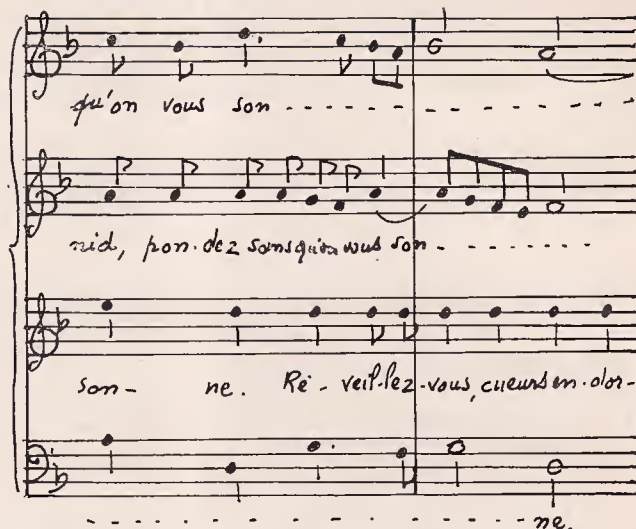 qu'on vous son - - - - - - - - - - - - - - -
nid, pon-dez sans qu'on vous son - - - - - - -
son - ne. Ré - veil-lez-vous, cueurs en-dor-
- - - - - - - - - - - - - - ne.